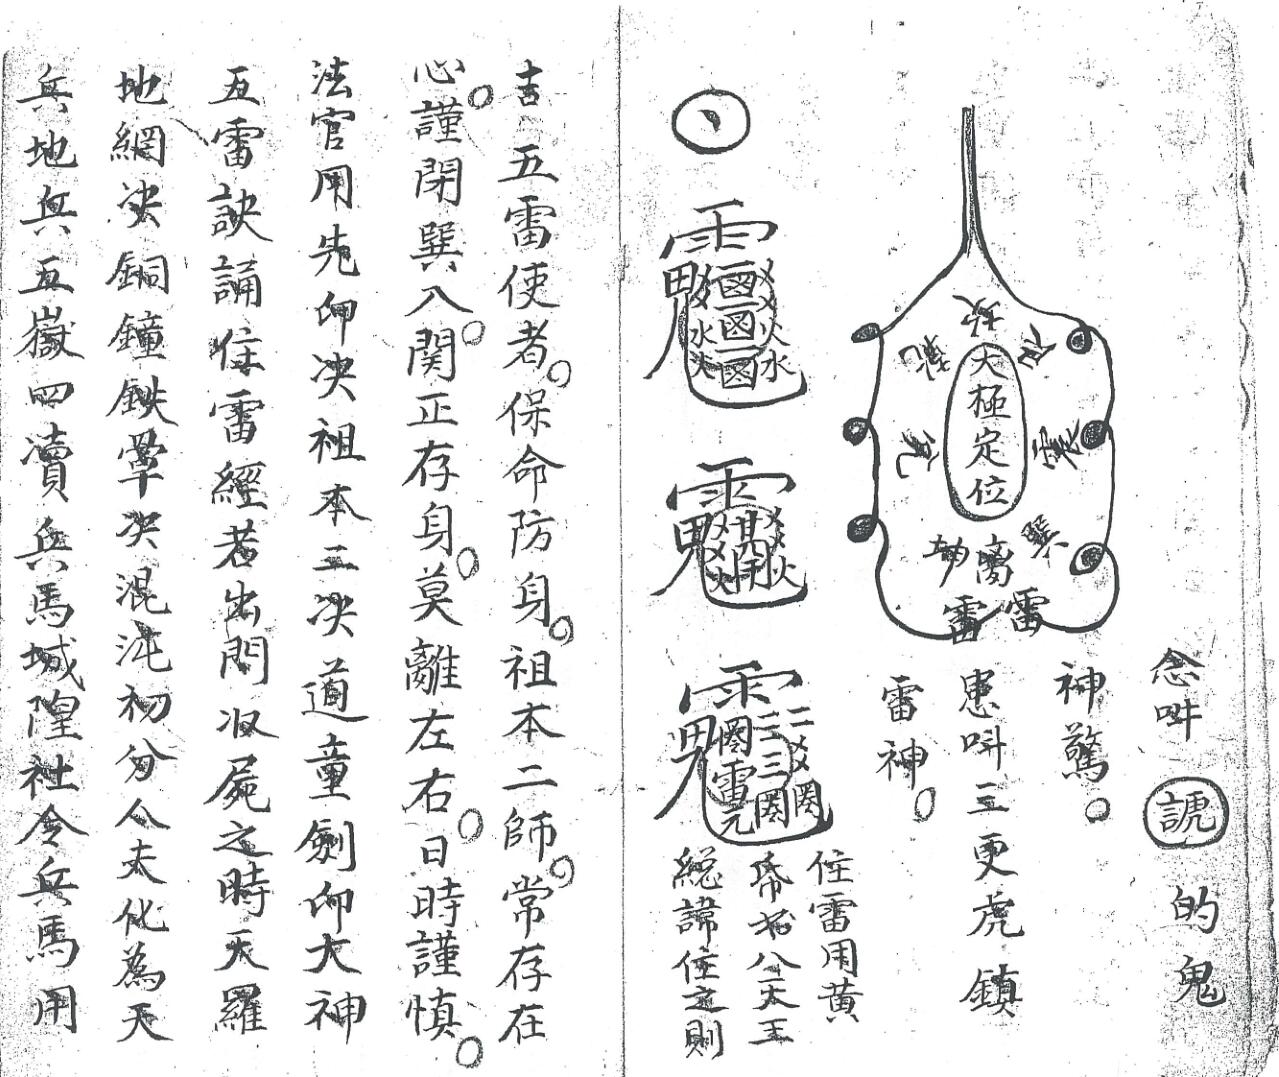 念呌諕的鬼
神驚。
患呌三更虎鎮
雷神。
太極定位
坎
艮
震
巽
离
坤
兌
乾
雷
雷
住雷用黄
帋書八大王
総諱住之則
吉五雷使者。保命防身。祖本二師。常存在
心。謹閉巽八。関正存身。莫離左右。日時謹慎。
法官用先仰决祖本三决道童劍仰大神
五雷訣誦住雷經若出門収屍之時天羅
地網决銅鐘鉄䍐决混沌初分人夫化為天
兵地兵五嶽四瀆兵馬城隍社令兵馬用